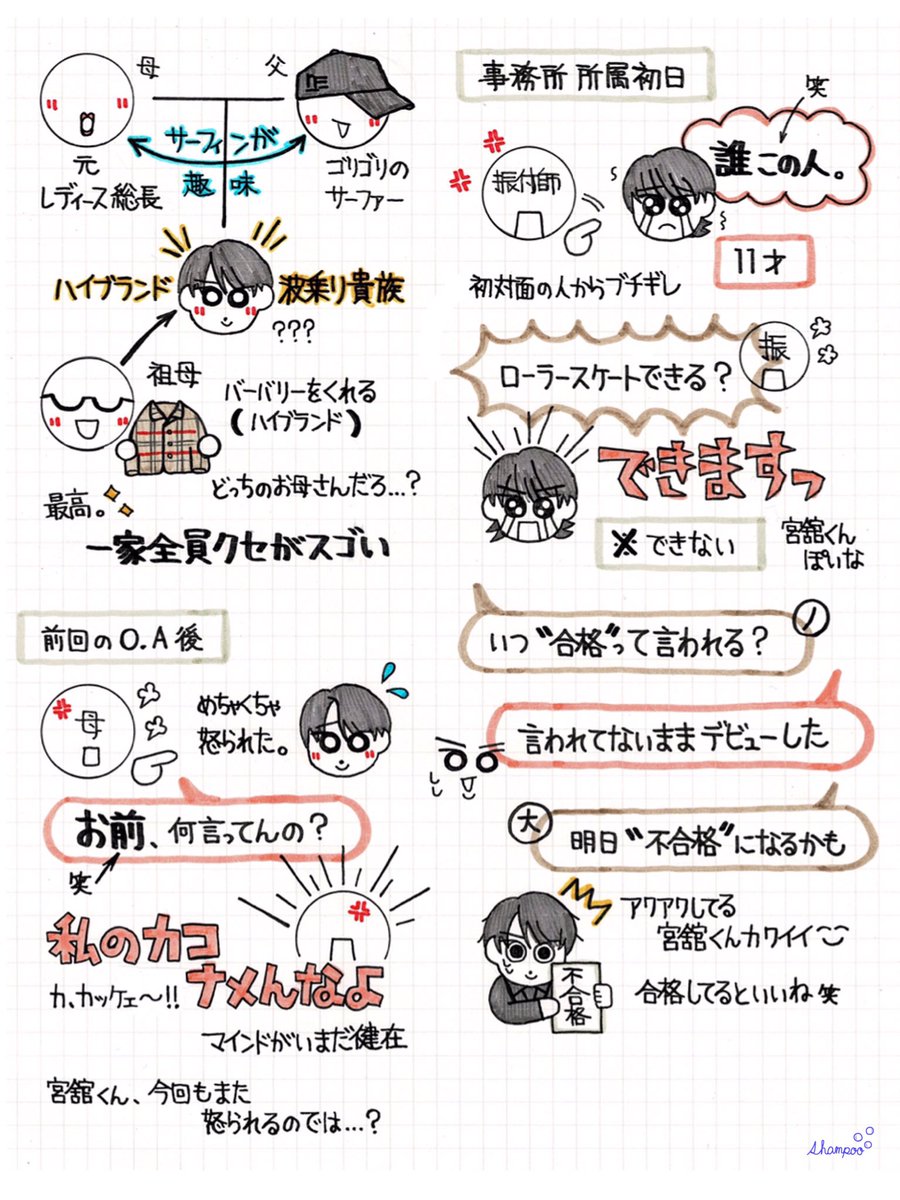 母
父
サーフィンが
趣味
元
レディース総長
ゴリゴリの
サーファー
ハイブランド
波乗り貴族
???
祖母
バーバリーをくれる
(ハイブランド)
どっちのお母さんだろ…?
最高。
一家全員クセがスゴい
前回のO.A後
母
めちゃくちゃ
怒られた。
お前、何言ってんの?
笑
私のカコ
ナメんなよ
カ、カッケェ〜!!
マインドがいまだ健在
宮舘くん、今回もまた
怒られるのでは…?
事務所所属初日
笑
振付師
誰この人。
11才
初対面の人からブチギレ
ローラースケートできる?
振
できますっ
※できない
宮舘くん
ぽいな
いつ"合格"って言われる?
ノ
言われてないままデビューした
大
明日"不合格"になるかも
アワアワしてる
宮舘くんカワイイ
不合格
合格してるといいね 笑
Shampoo